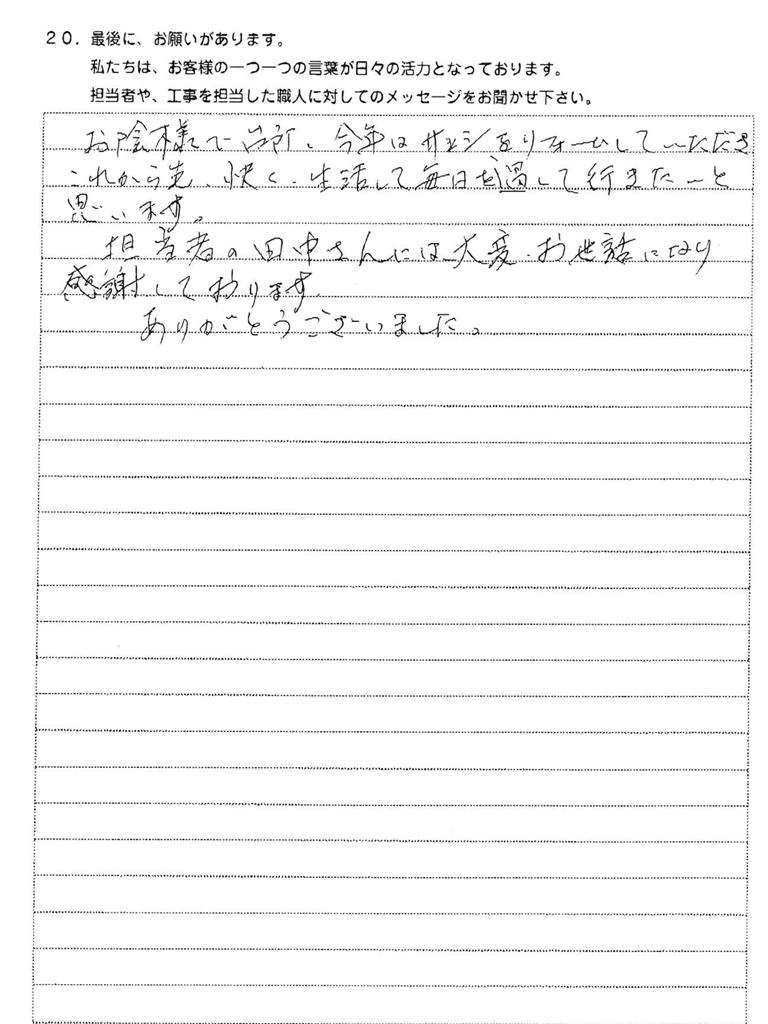 ２０．最後に、お願いがあります。
私たちは、お客様の一つ一つの言葉が日々の活力となっております。
担当者や、工事を担当した職人に対してのメッセージをお聞かせ下さい。
お陰様で台所、今年はサッシをリフォームしていただき
これから先、快く、生活して毎日を過して行きたいと
思います。
担当者の田中さんには大変、お世話になり
感謝しております。
ありがとうございました。